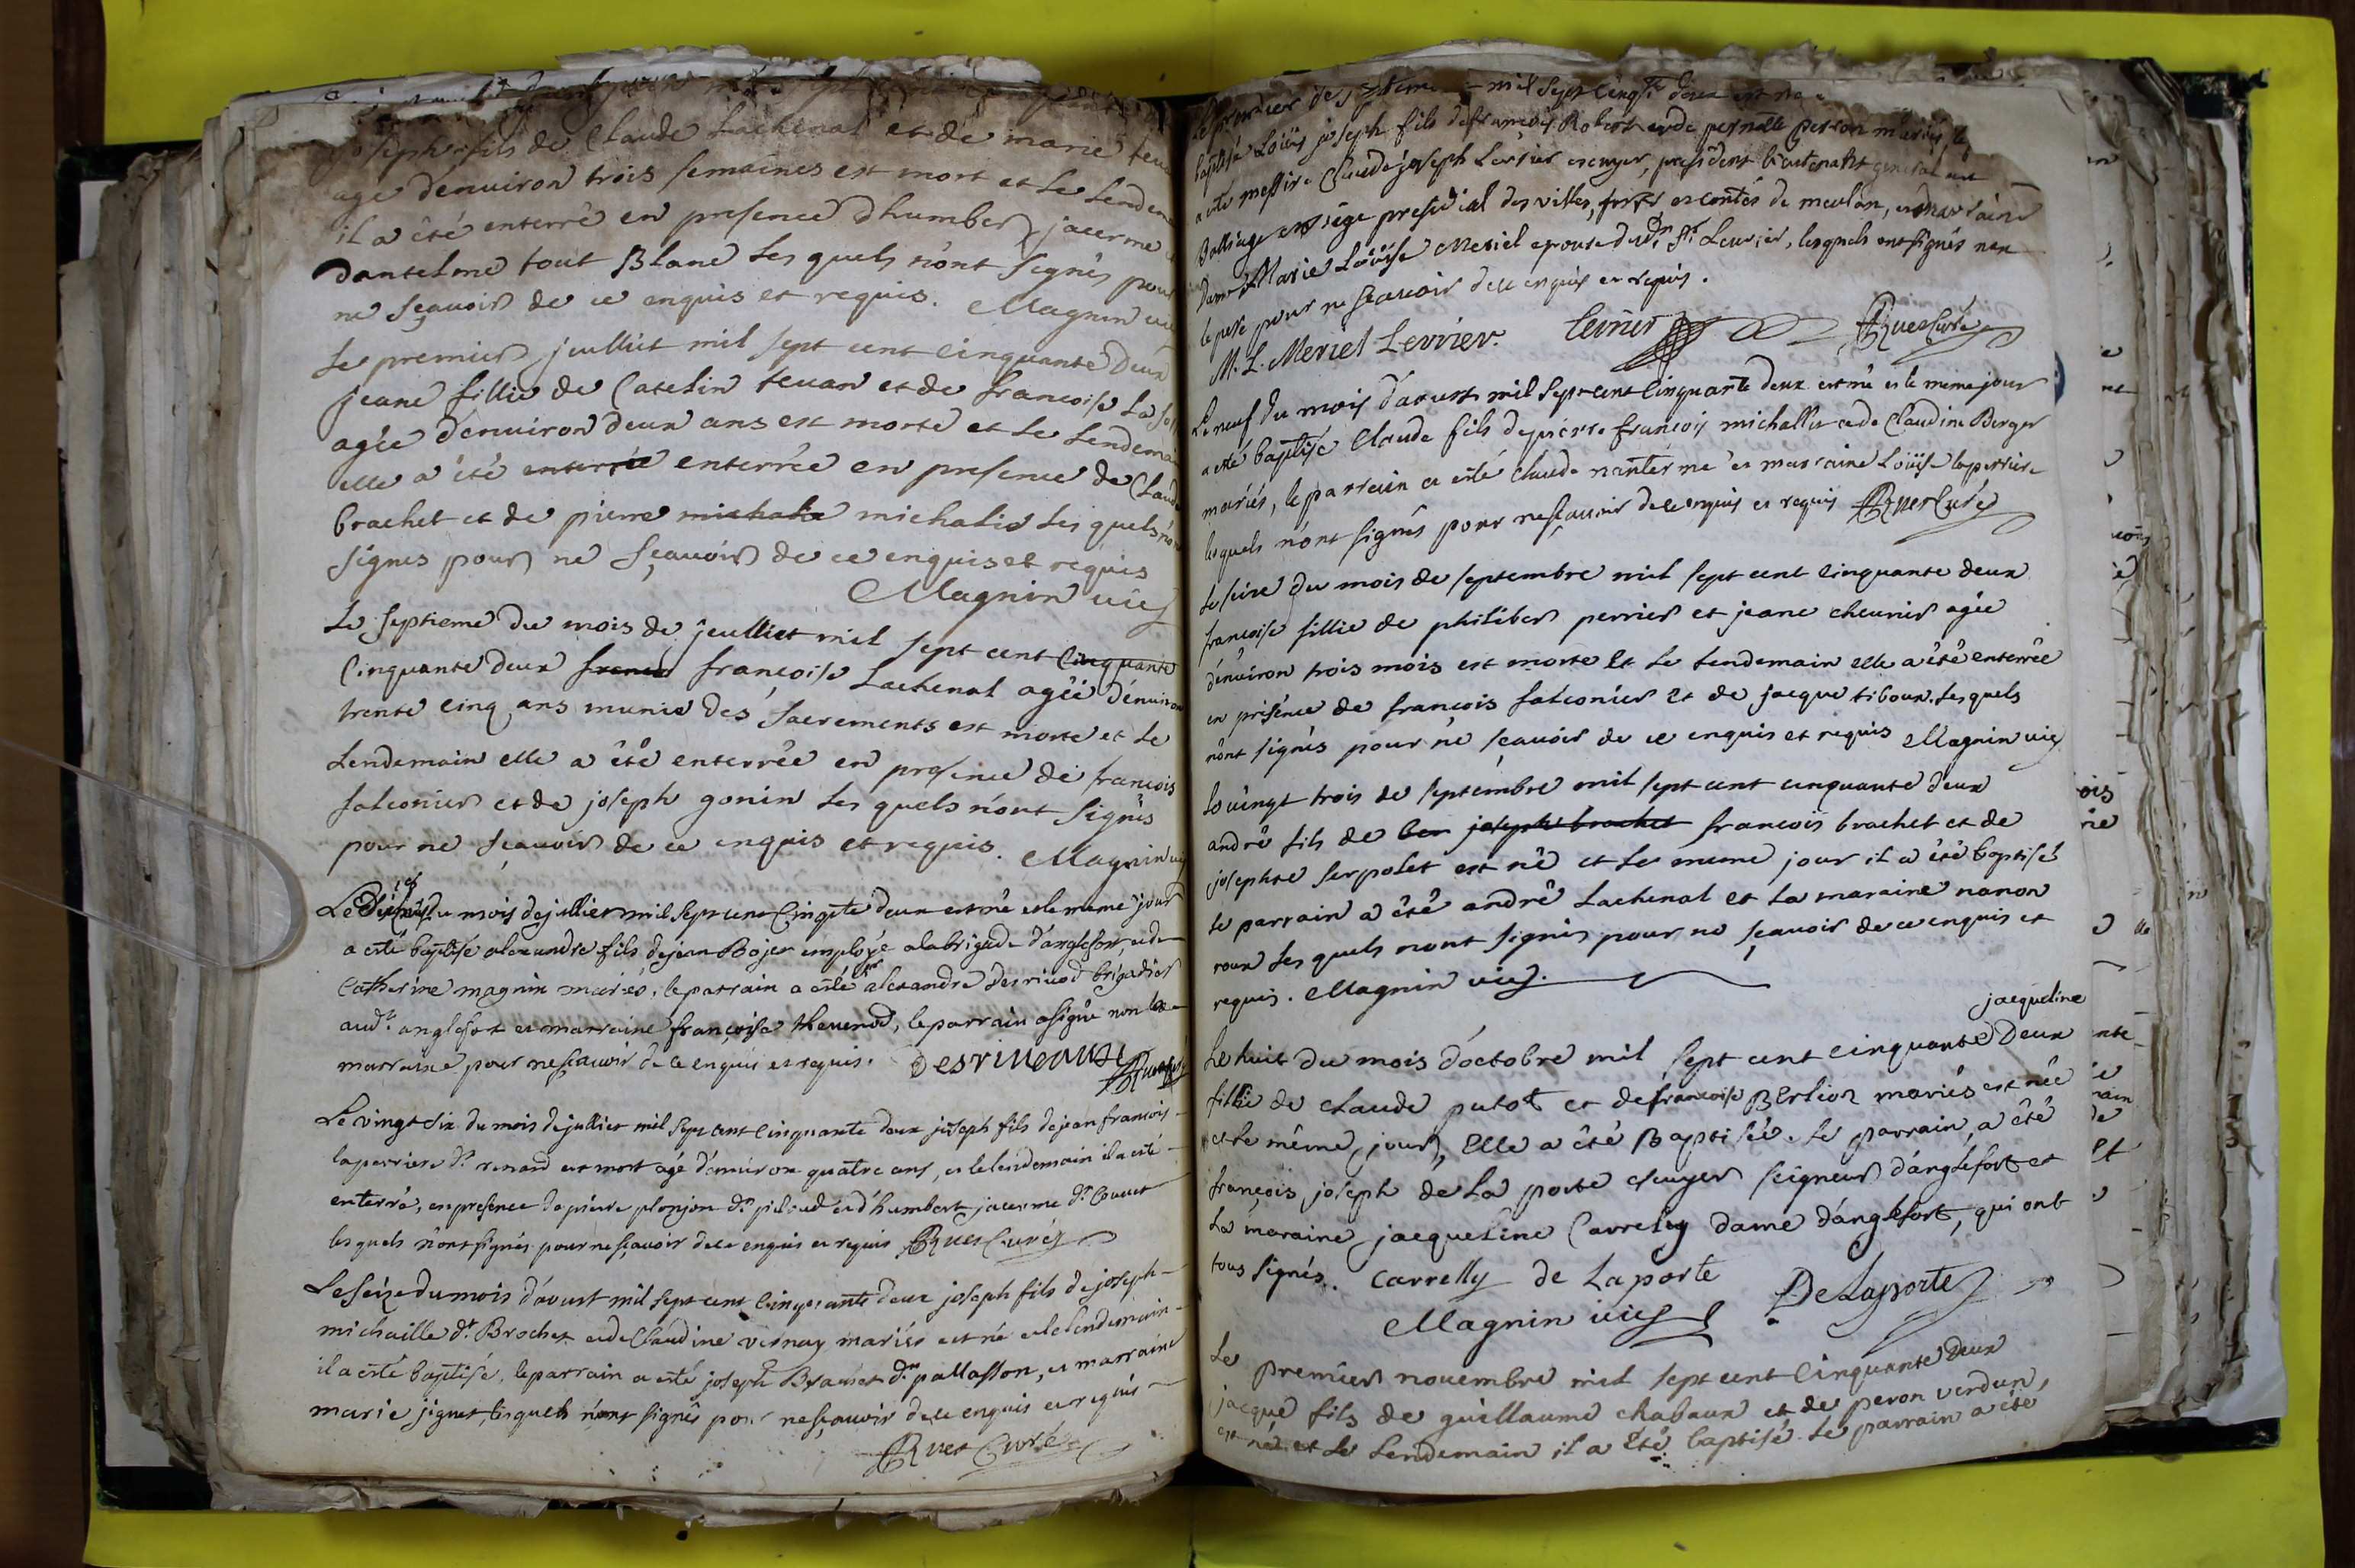 joseph fils de Claude Lachenal et de marie
agé d'enuiron trois semaines est mort et le Lendem
il a été enterré en presence d'humber jacerme
dantelme tout Blanc Les quels n'ont signés pour
ne sçauoir de ce enquis et requis. Magnin vic
Le premier juilliet mil sept cent Cinquante Deux
jeane fillie de Catelin teuan et de francoise La
agée d'enuiron deux ans est morte et le Lendemai
elle a été enterrée enterrée en presence de Claude
brachet et de pierre michalie michalie Les quels n'on
signes pour ne sçauoir de ce enquis et requis
Magnin vic
Le septieme du mois de juilliet mil sept cent cinquante
Cinquante deux francoise Lachenal agée d'enuiron
trente cinq ans munie des sacrements est morte et Le
Lendemain elle a été enterrée en presence de francois
falconier et de joseph gonin Les quels n'ont signés
pour ne sçauoir de ce enquis et requis. Magnin vic
Le du mois de jullier mil sept cent Cinqte deux est né et le meme jour
a esté baptisé alexandre fils de jean Bojer employé a la brigade d'anglefort et de
Catherine magnin mariés, le parrain a esté sr alexandre desriuod brigadier
audt anglefort et marraine françoise theuenod, le parrain a signé non la
marraine pour ne scauoir de ce enquis et requis.
Le vingt six du mois de jullier mil sept cent Cinquante deux joseph fils de jean francois
laperriere dt renard est mort agé d'enuiron quatre ans, et le lendemain il a esté
enterré, en presence de pierre plonjon dt piloud et d'humbert jacerme dt Couuet
les quels n'ont signés pour ne sçauoir de ce enquis et requis Ruet Curé
Le seize du mois d'avust mil sept cent Cinquante deux joseph fils de joseph
michaille dt Brochet et de Claudine vernay mariés est né et le lendemain
il a esté baptisé, le parrain a esté joseph Brachet dt pallasson, et marraine
marie jignet, lesquels n'ont signés pour ne sçauoir de ce enquis et requis
Ruet Curé
Le premier de mil sept Cinqte deux est né
baptisé Loüis joseph fils de françois Robert et de pernette perron mariés, le
a esté messire Claude joseph Leurier escuyer, president lieutenant general au
Balliage et siege presidial des villes, et contés de meulan, et marraine
Dame Marie Loüise Meriel epouse dudt sr Leurier, lesquels ont signés non
le pere pour ne scauoir de ce enquis et requis.
M. L. Meriel Levrier. Levrier Ruet Curé
Le neuf du mois d'avust mil sept cent Cinquante deux est né et le meme jour
a esté baptisé Claude fils de pierre françois michallet et de Claudine Berger
mariés, le parrain a esté Claude nanterme et marraine Loüise laperriere
lesquels n'ont signés pour ne sçauoir de ce enquis et requis Ruet Curé
Le seize du mois de septembre mil sept cent Cinquante deux
françoise fillie de philiber perrier et jeane cheurier agée
d'enuiron trois mois est morte et Le Lendemain elle a été enterrée
en présence de francois falconier et de jacque tiboux. Les quels
n'ont signés pour ne sçauoir de ce enquis et requis Magnin vic
Le uingt trois de septembre mil sept cent cinquante deux
andré fils de joseph brachet francois brachet et de
josephte serpolet est né et Le meme jour il a été baptisé
Le parrain a été andré Lachenal et La maraine nanon
roux Les quels n'ont signés pour ne sçauoir de ce enquis et
requis. Magnin vic.
jaqueline
Le huit du mois d'octobre mil sept cent cinquante Deux
fillie de claude putot et de francoise Berlioz mariés est née
et le même jour, Elle a été Baptisée. Le parrain, a été
françois, joseph de La porte escuyer seigneur d'anglefort et
La maraine jacqueline Carrelly dame d'anglefort, qui ont
tous signés. Carrelly de Laporte De Laporte
Magnin vic
Le premier nouembre mil sept cent Cinquante Deux
jacque fils de guillaume chabaux et de peron verdun,
est né. et Le Lendemain il a Eté baptisé. Le parrain a été